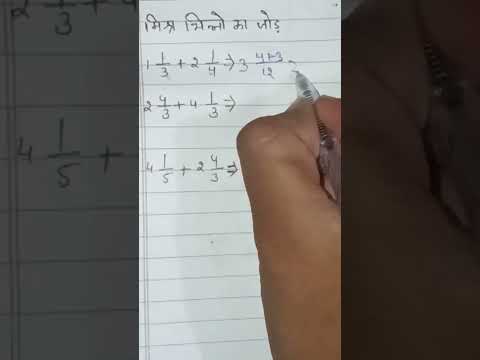 मिश्र भिन्नो का जोड़
1 1/3 + 2 1/4 ⇒ 3 4+3/12 =
2 4/3 + 4 1/3 ⇒
4 1/5 + 2 4/3 ⇒